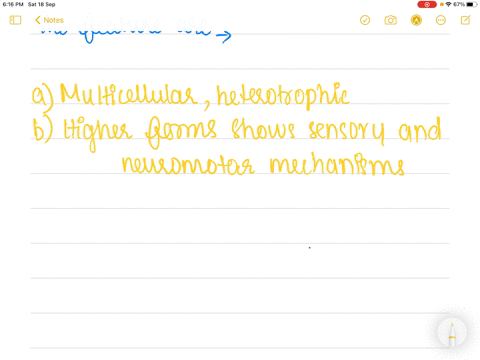 6:16 PM Sat 18 Sep
67%
Notes
the
→
a) Multicellular, heterotrophic
b) Higher forms shows sensory and
neuromotar mechanisms